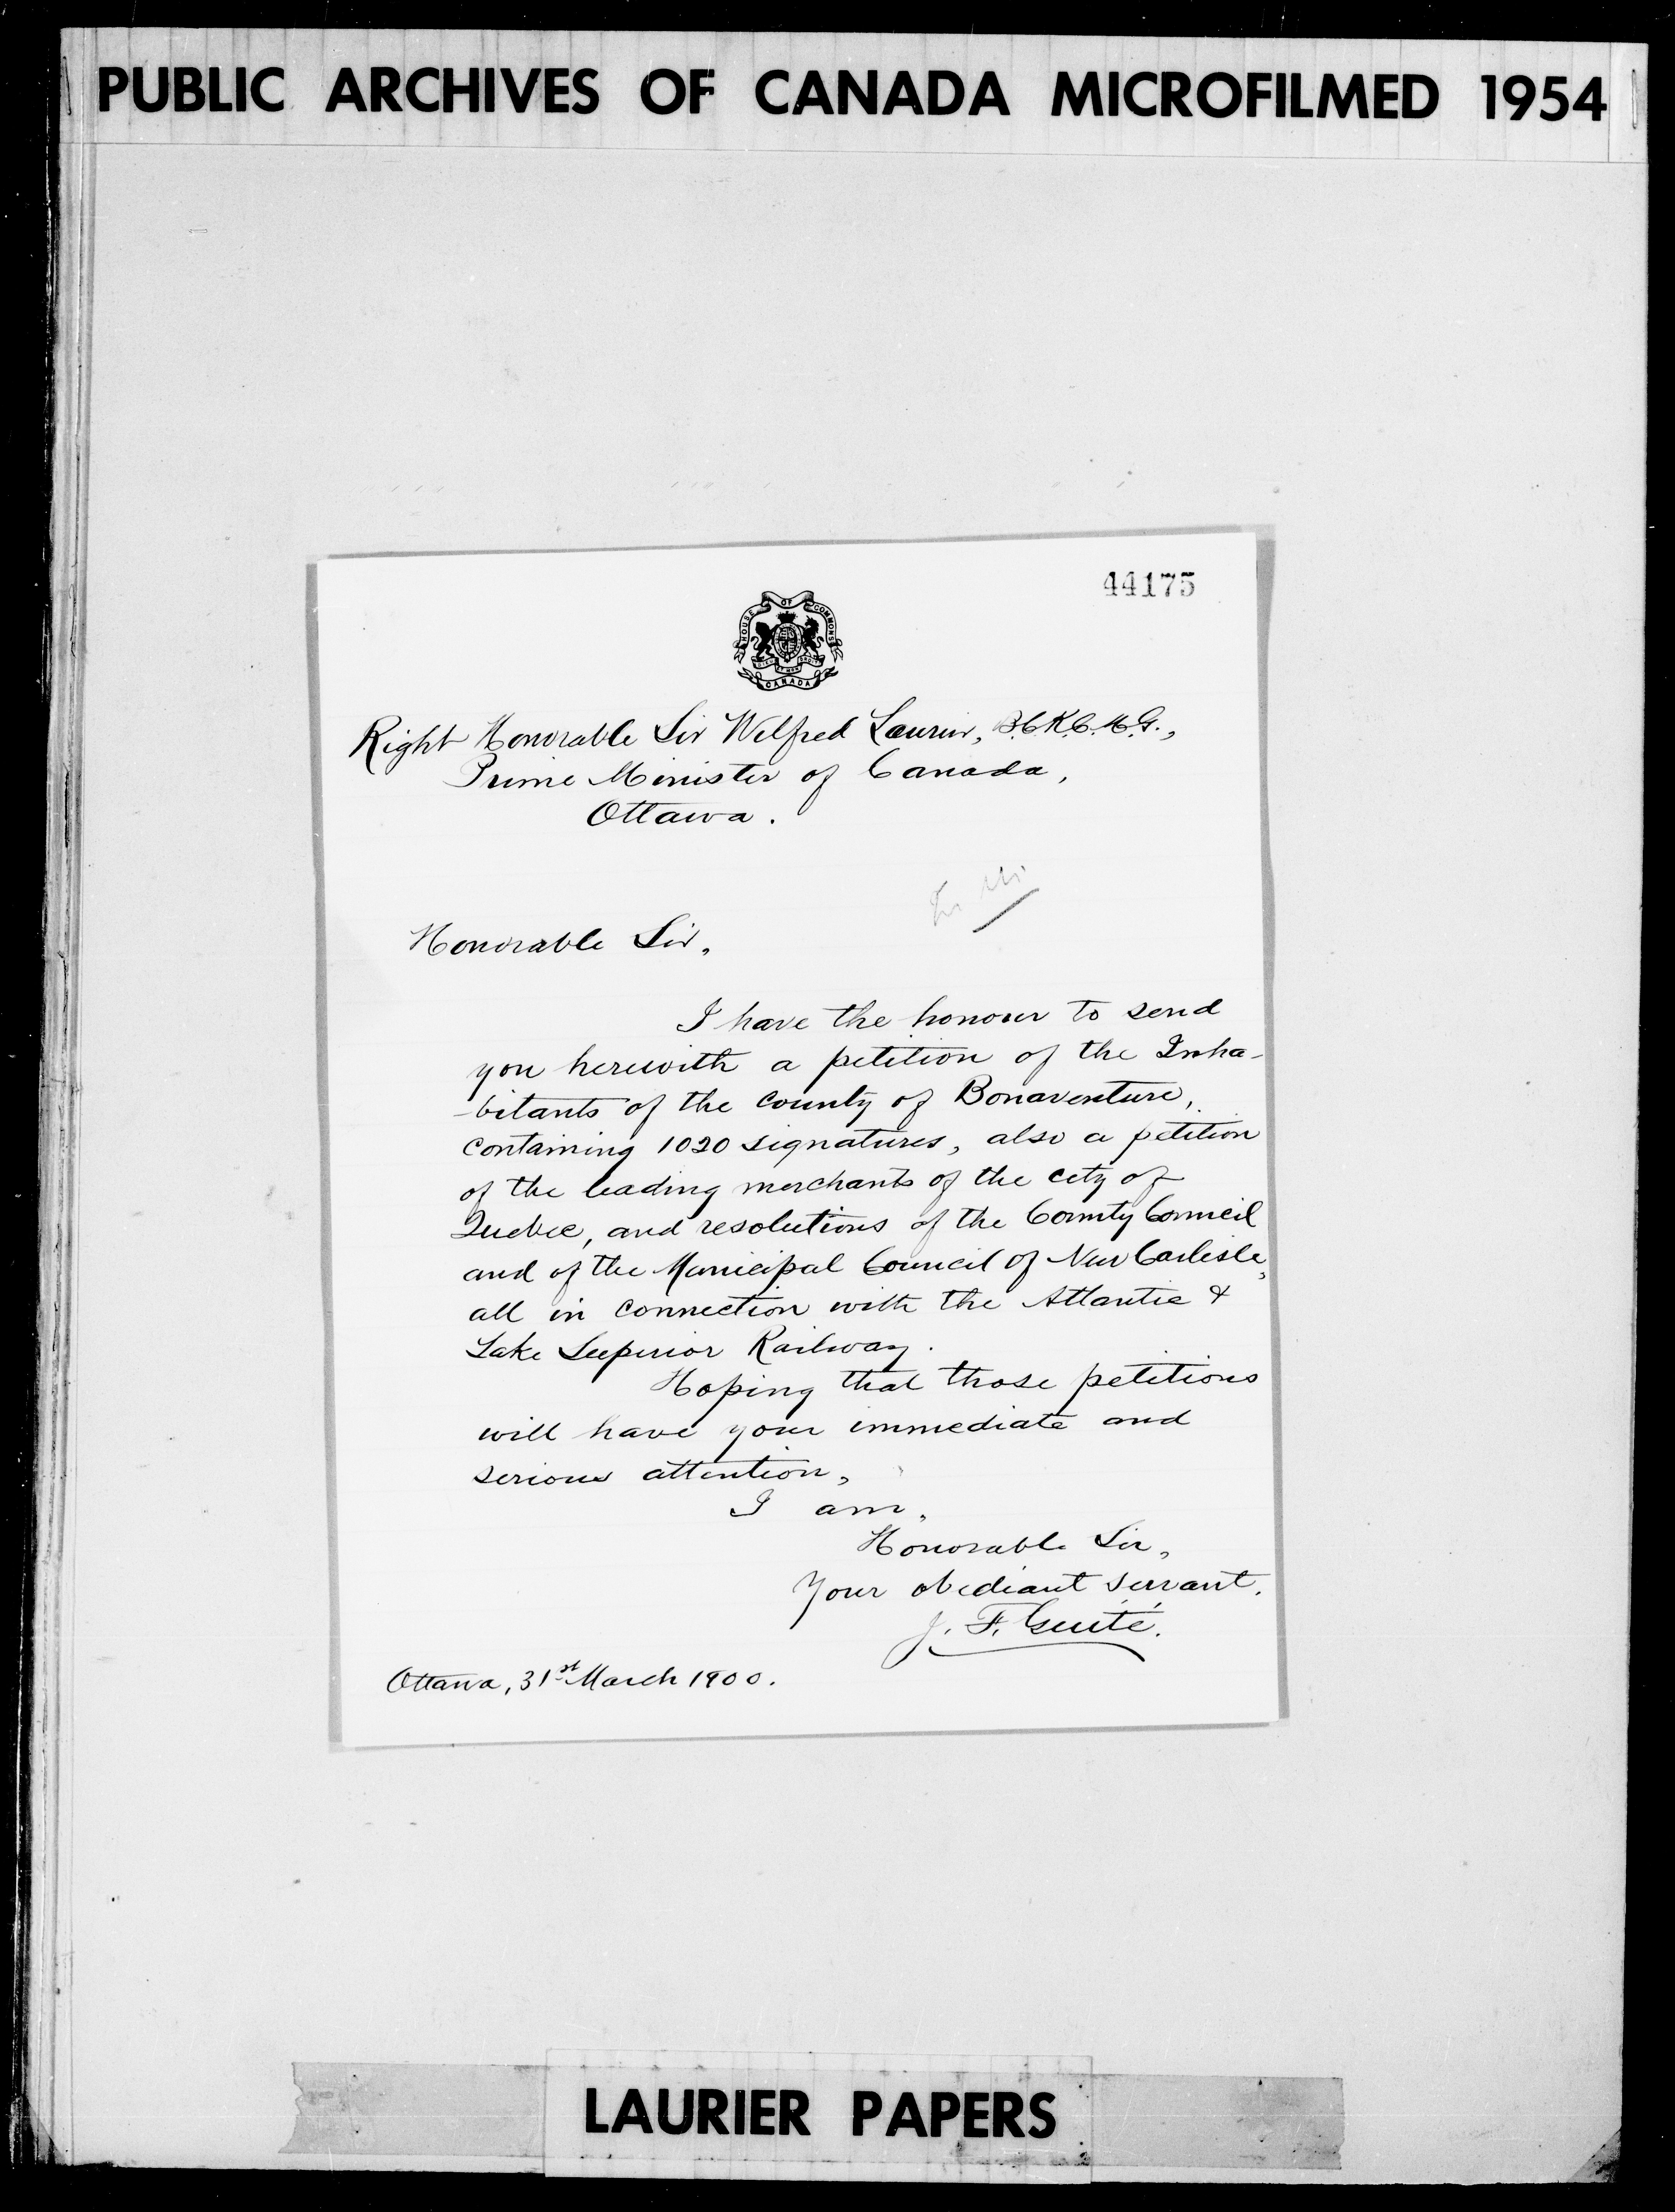 PUBLIC ARCHIVES OF CANADA MICROFILMED 1954
44175
HOUSE OF COMMONS
CANADA
Right Honorable Sir Wilfred Laurier, P.C.K.C.M.G.,
Prime Minister of Canada,
Ottawa.
Honorable Sir,
I have the honour to send
you herewith a petition of the Inha-
-bitants of the County of Bonaventure,
containing 1020 signatures, also a petition
of the leading merchants of the city of
Quebec, and resolutions of the County Council
and of the Municipal Council of New Carlisle,
all in connection with the Atlantic &
Lake Superior Railway.
Hoping that those petitions
will have your immediate and
serious attention,
I am,
Honorable Sir,
Your obediant servant.
J. F. Guité.
Ottawa, 31st March 1900.
LAURIER PAPERS